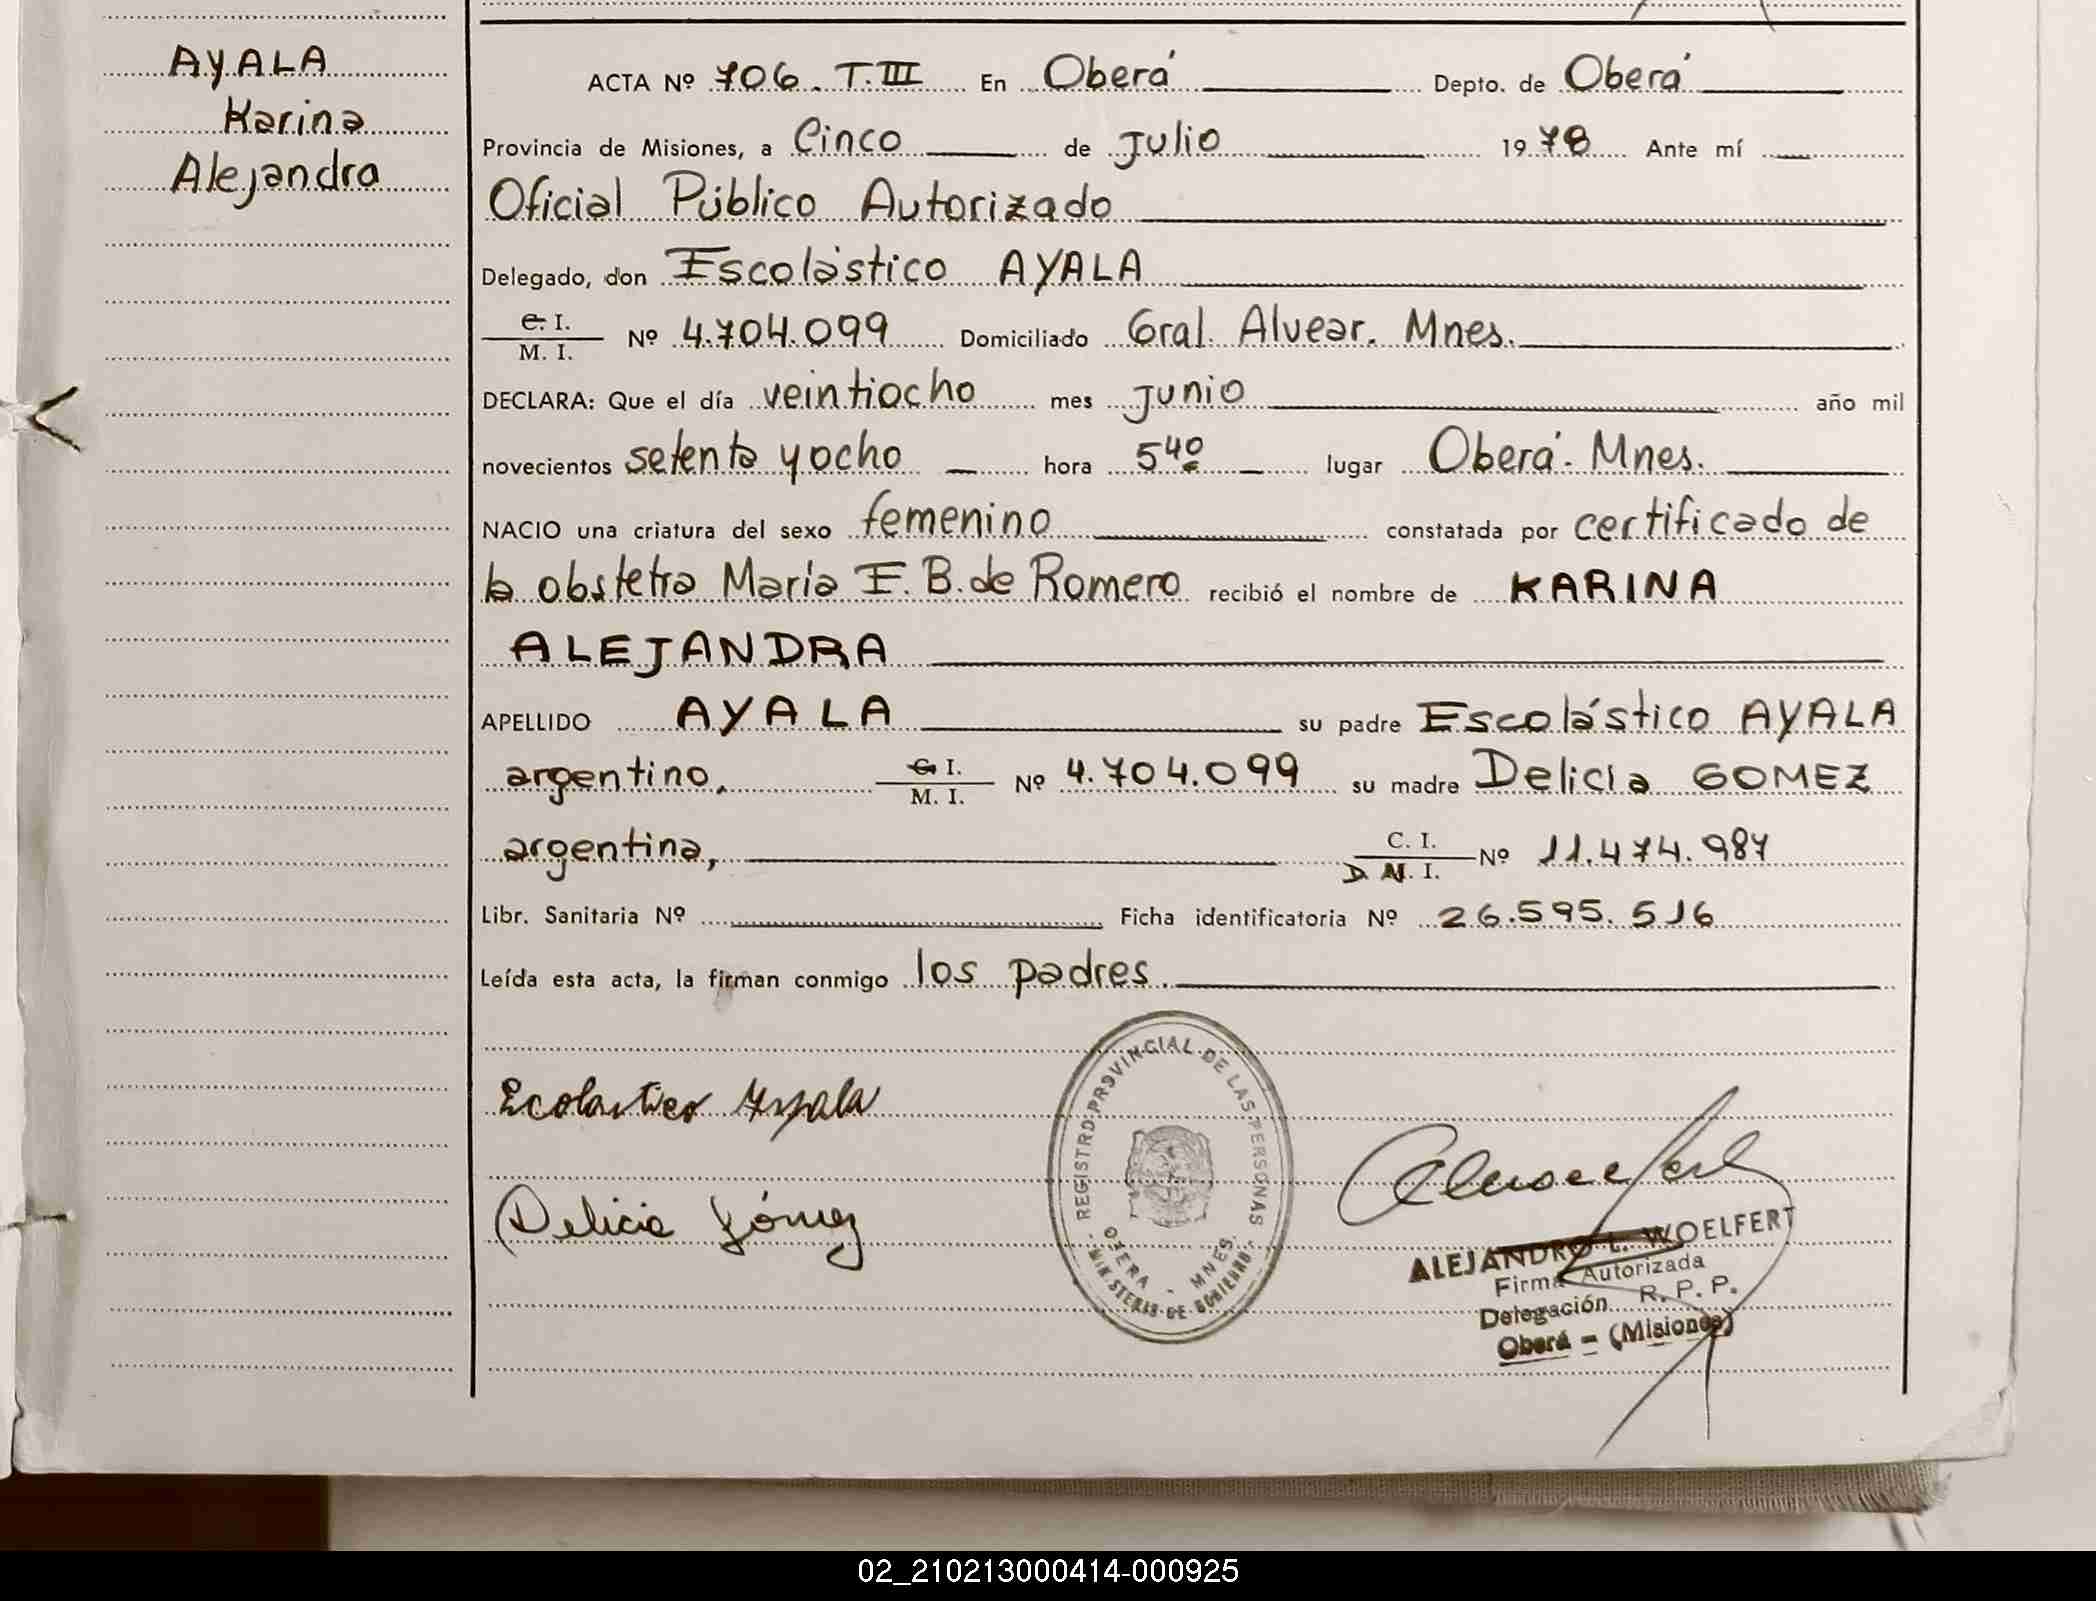 AYALA
Karina
Alejandra
ACTA Nº 706. T.III En Oberá Depto. de Oberá
Provincia de Misiones, a Cinco de Julio 1978 Ante mí
Oficial Público Autorizado
Delegado, don Escolástico AYALA
C. I.
M. I. Nº 4.704.099 Domiciliado Gral. Alvear. Mnes.
DECLARA: Que el día veintiocho mes Junio año mil
novecientos setenta y ocho hora 5 40 lugar Oberá. Mnes.
NACIO una criatura del sexo femenino constatada por certificado de
la obstetra María E. B. de Romero recibió el nombre de KARINA
ALEJANDRA
APELLIDO AYALA su padre Escolástico AYALA
argentino, C. I.
M. I. Nº 4.704.099 su madre Delicia GOMEZ
argentina, C. I.
D. N. I. Nº 11.474.987
Libr. Sanitaria Nº Ficha identificatoria Nº 26.595.516
Leída esta acta, la firman conmigo los padres.
Ecolastico Ayala
Delicia Gómez
REGISTRO PROVINCIAL DE LAS PERSONAS
OBERA - MNES.
- MINISTERIO DE GOBIERNO -
ALEJANDRO L. WOELFERT
Firma Autorizada
Delegación R. P. P.
Oberá - (Misiones)
02_210213000414-000925